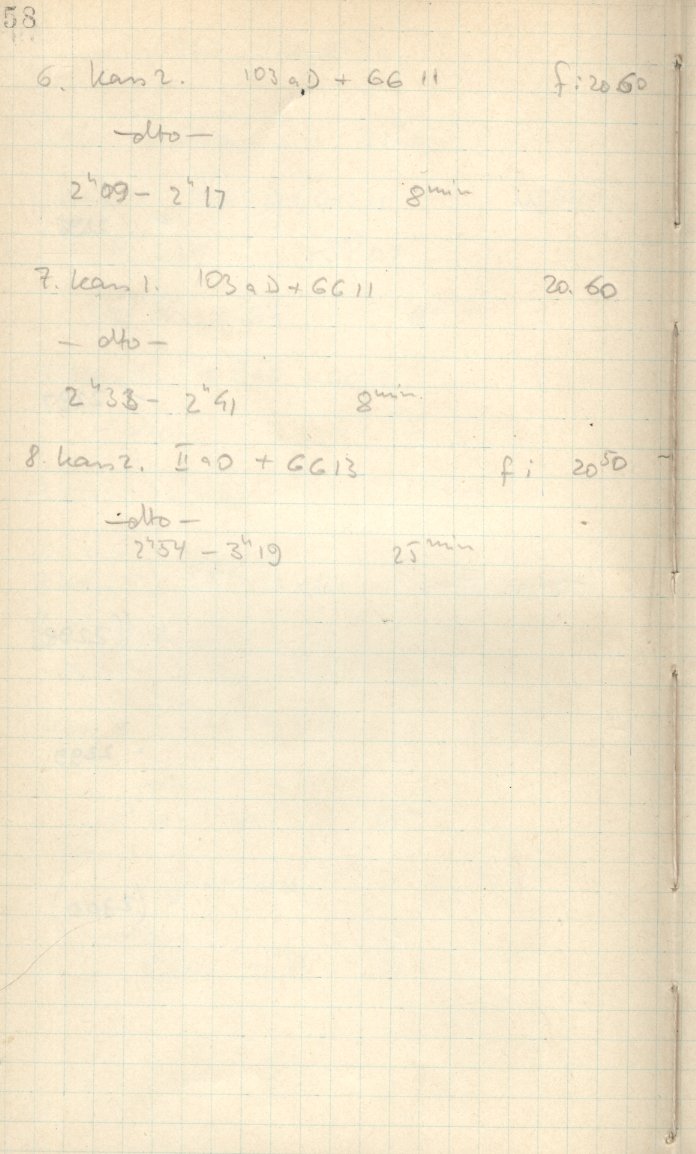 58
6. Kass 2. 103 a D + GG 11 f: 20.60
— dto —
2ʰ09 – 2ʰ17 8ᵐⁱⁿ
7. Kass 1. 103 a D + GG 11 20.60
— dto —
2ʰ33 – 2ʰ41 8ᵐⁱⁿ
8. Kass 2. II a O + GG 13 f: 20⁵⁰
— dto —
2ʰ54 – 3ʰ19 25ᵐⁱⁿ